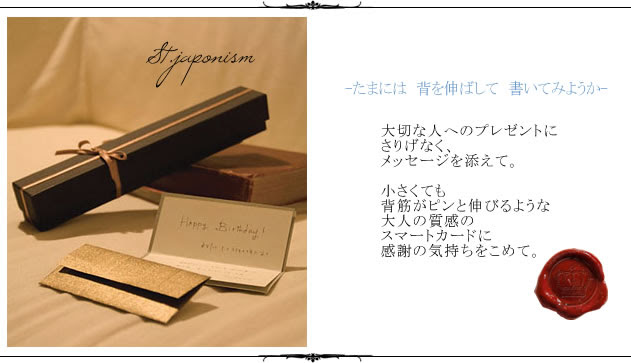 St.japonism
Happy Birthday!
-たまには 背を伸ばして 書いてみようか-
大切な人へのプレゼントに
さりげなく、
メッセージを添えて。
小さくても
背筋がピンと伸びるような
大人の質感の
スマートカードに
感謝の気持ちをこめて。